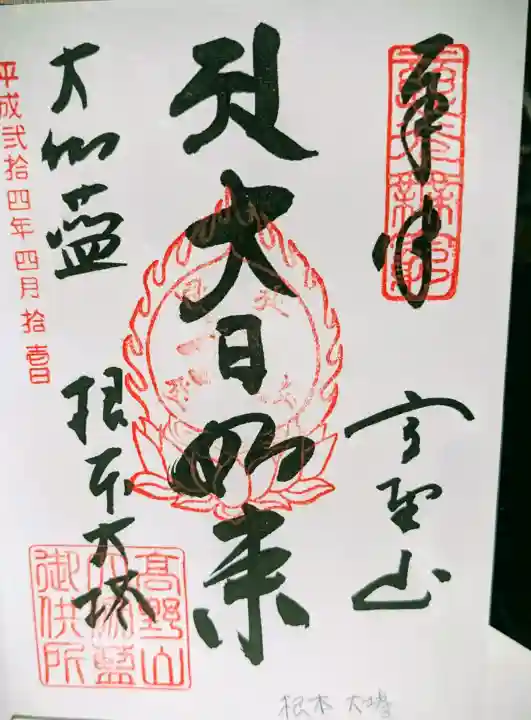 奉拝
高野山
大日如来
大伽藍
根本大塔
平成弐拾四年四月拾壱日
高野山
大伽藍
御供所
根本大塔